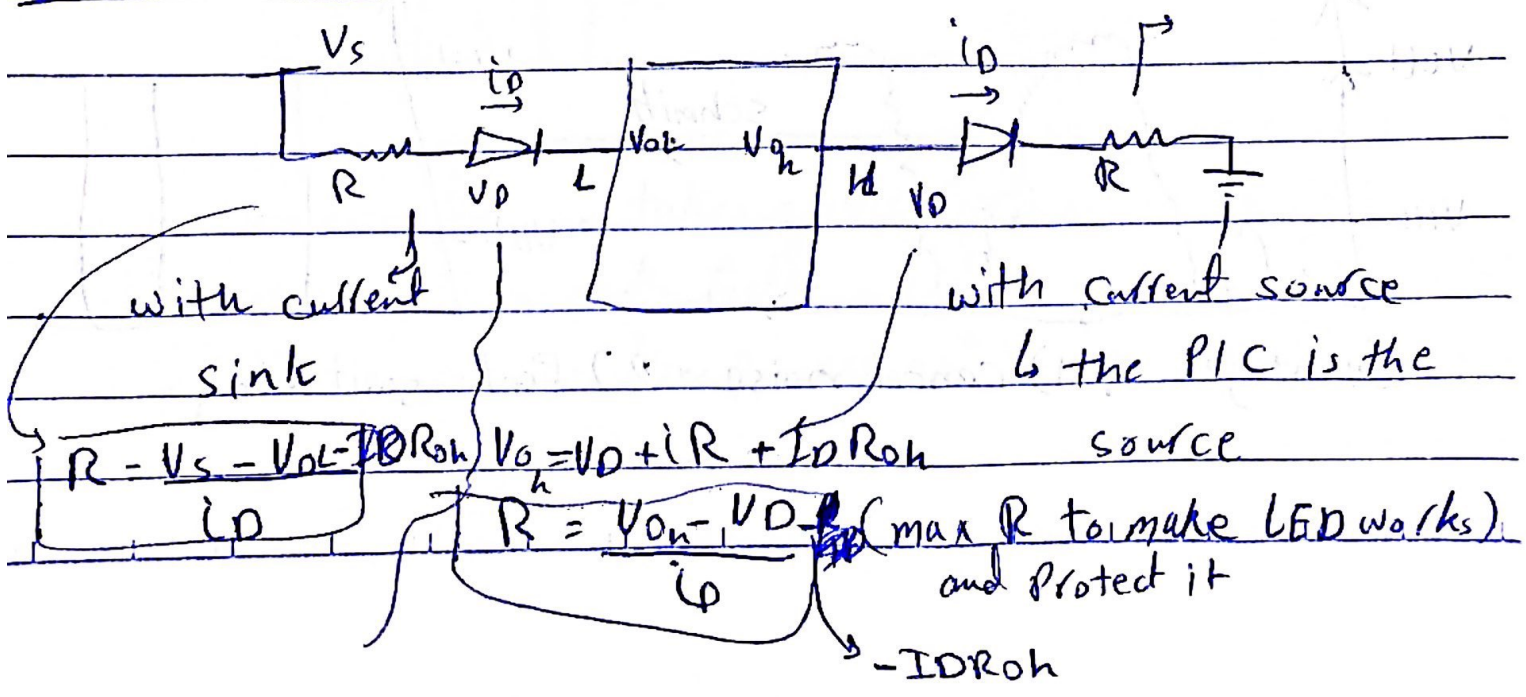 Vs
iD iD
VOL VOh
R VD L H VD R
with current with current source
sink ↳ the PIC is the
source
R = Vs - VOL - IDROh / iD
VOh = VD + iR + IDROh
R = VOh - VD / iD (max R to make LED works)
and Protect it
-IDROh